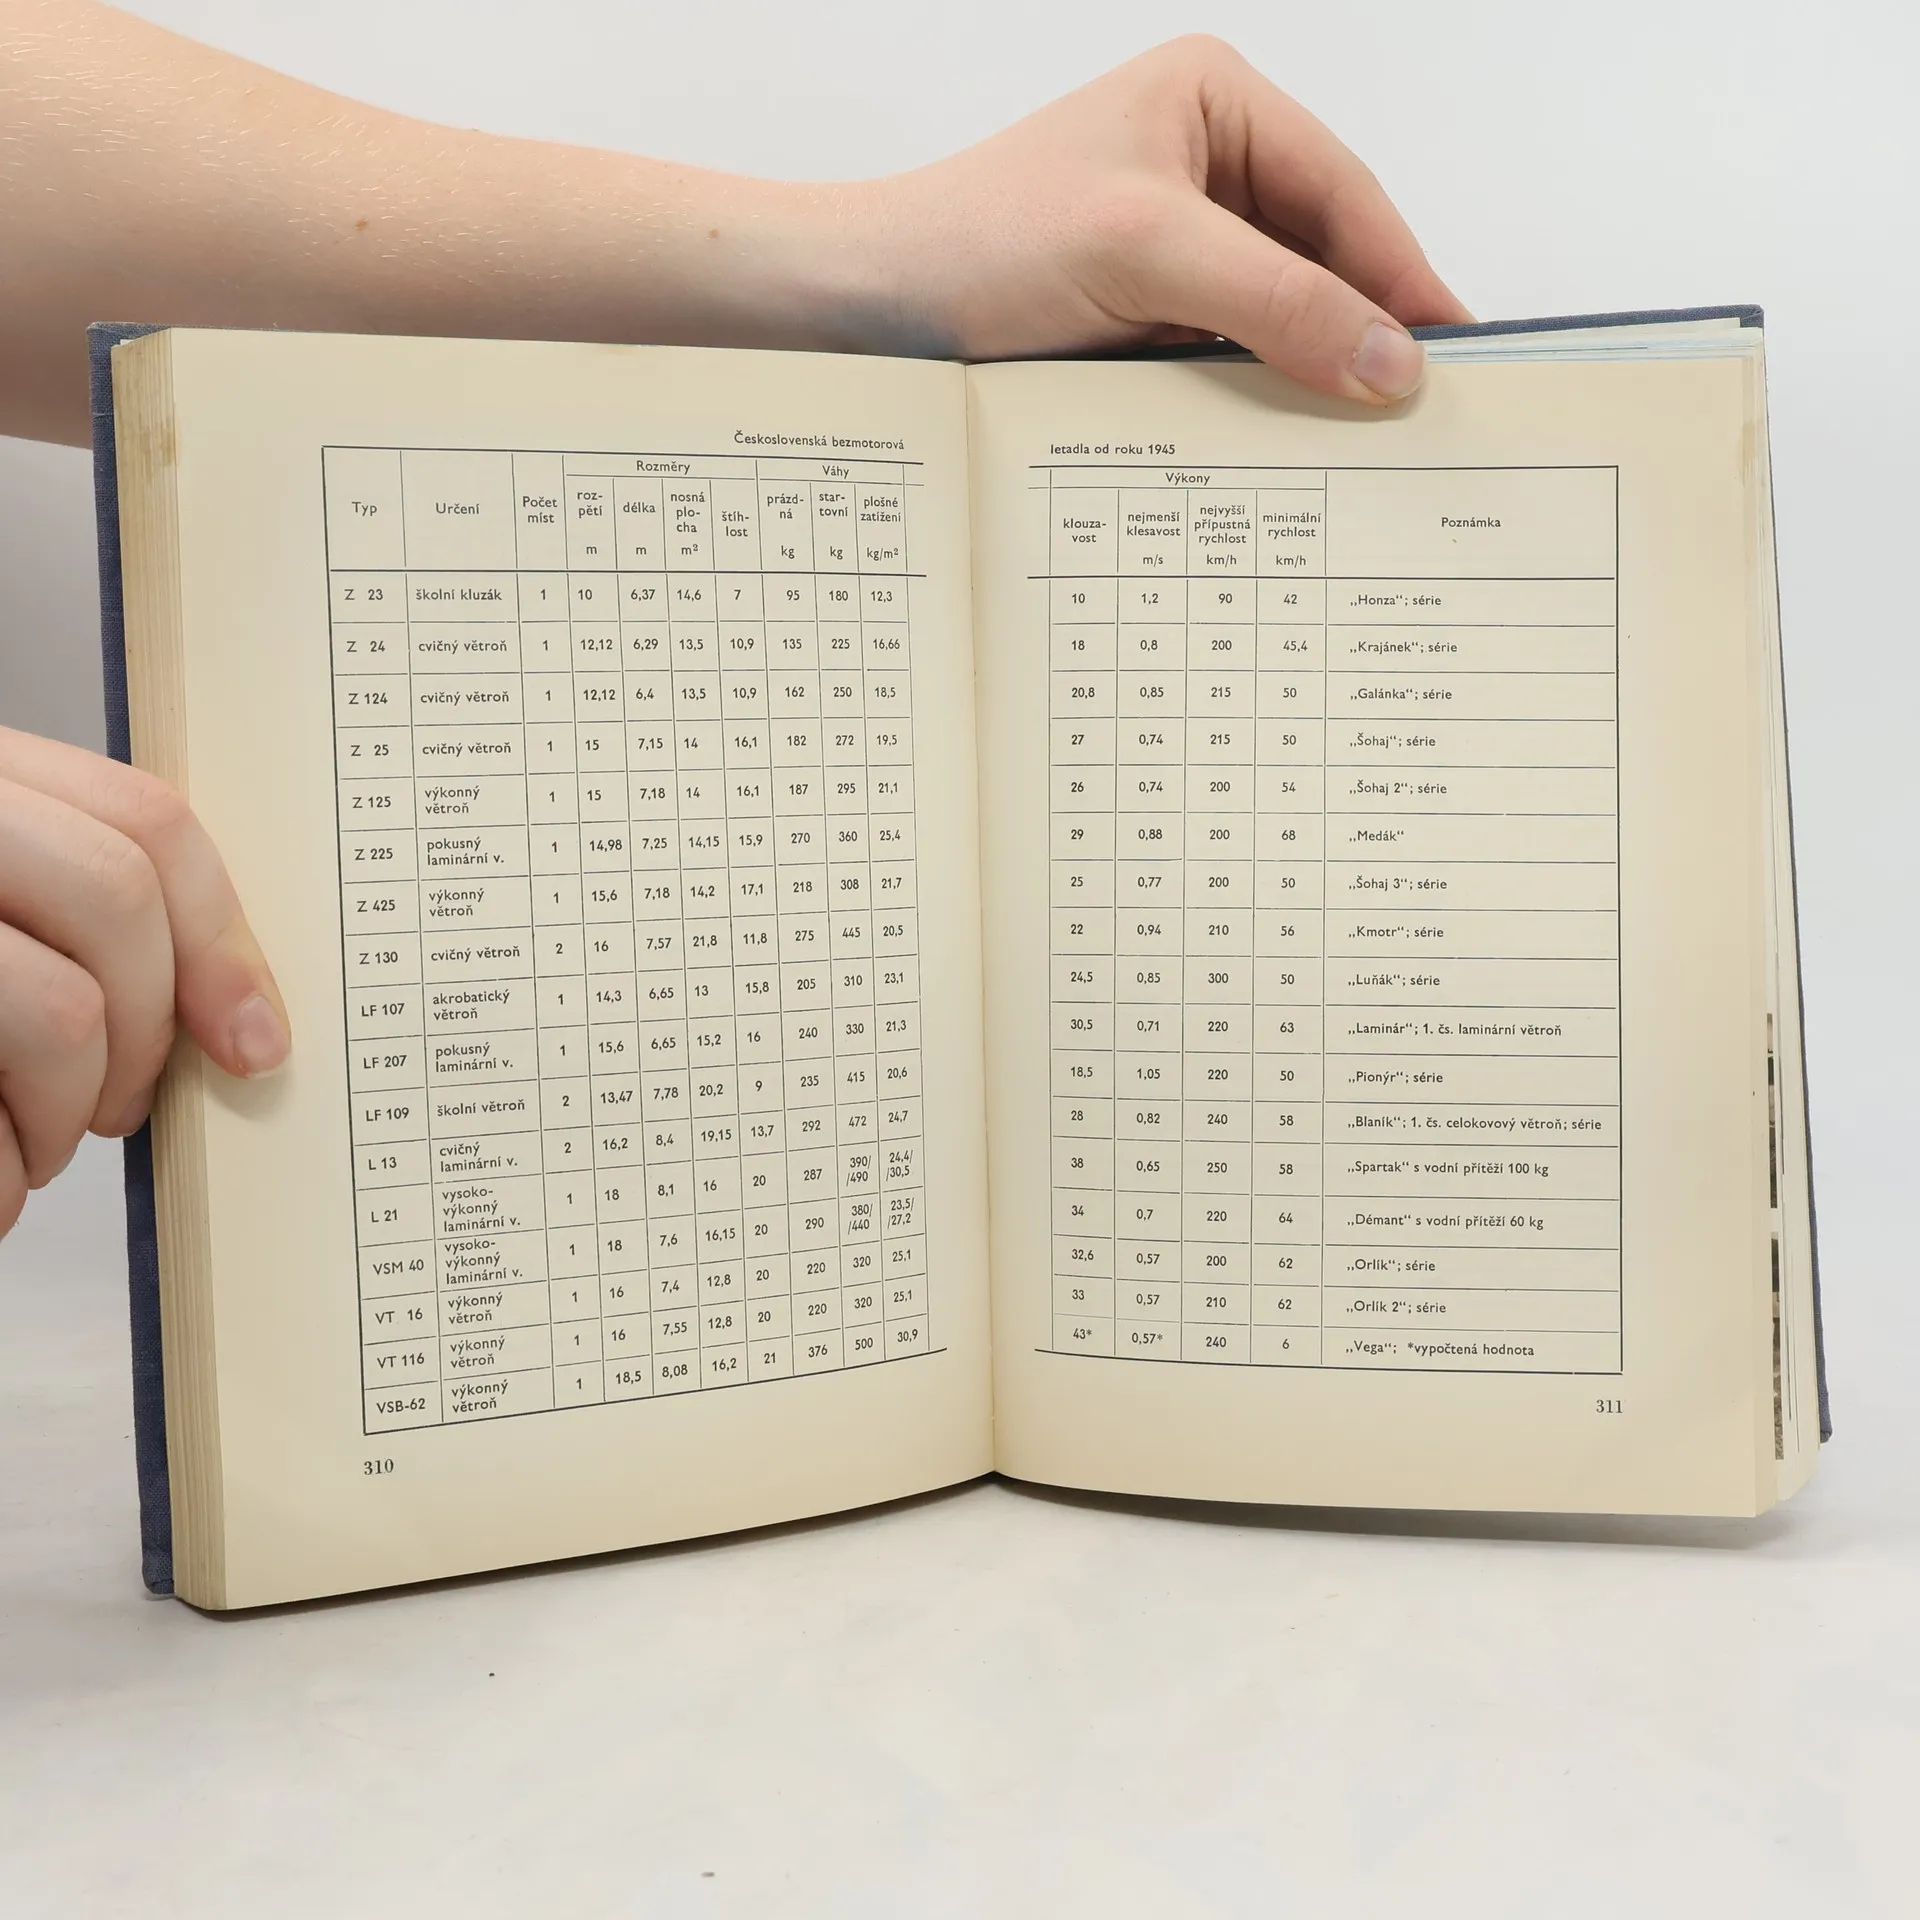 Československá bezmotorová
Typ Určení Počet míst Rozměry Váhy
roz- pětí m délka m nosná plo- cha m² štíh- lost prázd- ná kg star- tovní kg plošné zatížení kg/m²
Z 23 školní kluzák 1 10 6,37 14,6 7 95 180 12,3
Z 24 cvičný větroň 1 12,12 6,29 13,5 10,9 135 225 16,66
Z 124 cvičný větroň 1 12,12 6,4 13,5 10,9 162 250 18,5
Z 25 cvičný větroň 1 15 7,15 14 16,1 182 272 19,5
Z 125 výkonný větroň 1 15 7,18 14 16,1 187 295 21,1
Z 225 pokusný laminární v. 1 14,98 7,25 14,15 15,9 270 360 25,4
Z 425 výkonný větroň 1 15,6 7,18 14,2 17,1 218 308 21,7
Z 130 cvičný větroň 2 16 7,57 21,8 11,8 275 445 20,5
LF 107 akrobatický větroň 1 14,3 6,65 13 15,8 205 310 23,1
LF 207 pokusný laminární v. 1 15,6 6,65 15,2 16 240 330 21,3
LF 109 školní větroň 2 13,47 7,78 20,2 9 235 415 20,6
L 13 cvičný laminární v. 2 16,2 8,4 19,15 13,7 292 472 24,7
L 21 vysoko- výkonný laminární v. 1 18 8,1 16 20 287 390/ /490 24,4/ /30,5
VSM 40 vysoko- výkonný laminární v. 1 18 7,6 16,15 20 290 380/ /440 23,5/ /27,2
VT 16 výkonný větroň 1 16 7,4 12,8 20 220 320 25,1
VT 116 výkonný větroň 1 16 7,55 12,8 20 220 320 25,1
VSB-62 výkonný větroň 1 18,5 8,08 16,2 21 376 500 30,9
310
letadla od roku 1945
Výkony Poznámka
klouza- vost nejmenší klesavost m/s nejvyšší přípustná rychlost km/h minimální rychlost km/h
10 1,2 90 42 „Honza“; série
18 0,8 200 45,4 „Krajánek“; série
20,8 0,85 215 50 „Galánka“; série
27 0,74 215 50 „Šohaj“; série
26 0,74 200 54 „Šohaj 2“; série
29 0,88 200 68 „Medák“
25 0,77 200 50 „Šohaj 3“; série
22 0,94 210 56 „Kmotr“; série
24,5 0,85 300 50 „Luňák“; série
30,5 0,71 220 63 „Laminár“; 1. čs. laminární větroň
18,5 1,05 220 50 „Pionýr“; série
28 0,82 240 58 „Blaník“; 1. čs. celokovový větroň; série
38 0,65 250 58 „Spartak“ s vodní přítěží 100 kg
34 0,7 220 64 „Démant“ s vodní přítěží 60 kg
32,6 0,57 200 62 „Orlík“; série
33 0,57 210 62 „Orlík 2“; série
43* 0,57* 240 6 „Vega“; *vypočtená hodnota
311